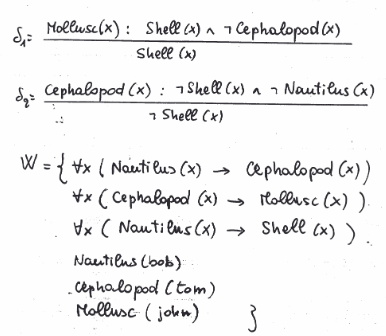 δ₁= Mollusc(x) : Shell(x) ∧ ¬ Cephalopod(x)
Shell(x)
δ₂= Cephalopod(x) : ¬ Shell(x) ∧ ¬ Nautilus(x)
¬ Shell(x)
W = { ∀x ( Nautilus(x) → Cephalopod(x))
∀x ( Cephalopod (x) → Mollusc(x) )
∀x ( Nautilus(x) → Shell(x) )
Nautilus(bob)
Cephalopod(tom)
Mollusc (john) }